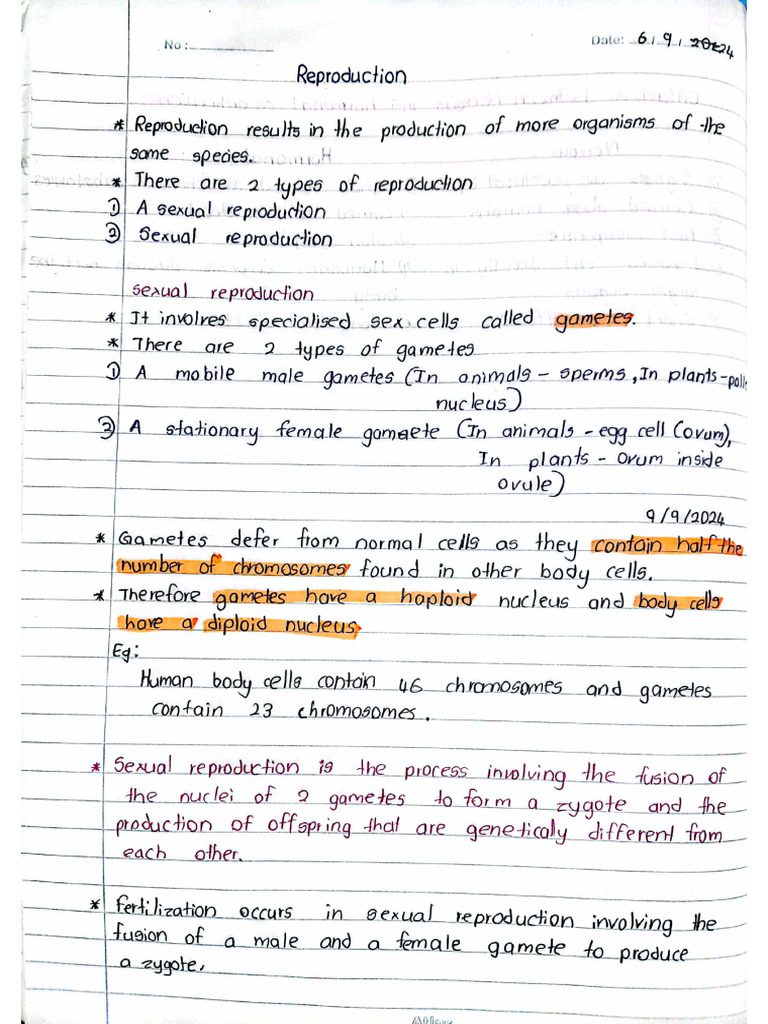 No :
Date: 6 / 9 / 2024
Reproduction
* Reproduction results in the production of more organisms of the
same species.
* There are 2 types of reproduction
① A sexual reproduction
② Sexual reproduction
sexual reproduction
* It involves specialised sex cells called gametes.
* There are 2 types of gametes
① A mobile male gametes (In animals - sperms, In plants - poll
nucleus)
② A stationary female gamete (In animals - egg cell (ovum),
In plants - ovum inside
ovule)
9/9/2024
* Gametes defer from normal cells as they contain half the
number of chromosomes found in other body cells.
* Therefore gametes have a haploid nucleus and body cells
have a diploid nucleus
Eg:
Human body cells contain 46 chromosomes and gametes
contain 23 chromosomes.
* Sexual reproduction is the process involving the fusion of
the nuclei of 2 gametes to form a zygote and the
production of offspring that are geneticaly different from
each other.
* Fertilization occurs in sexual reproduction involving the
fusion of a male and a female gamete to produce
a zygote.